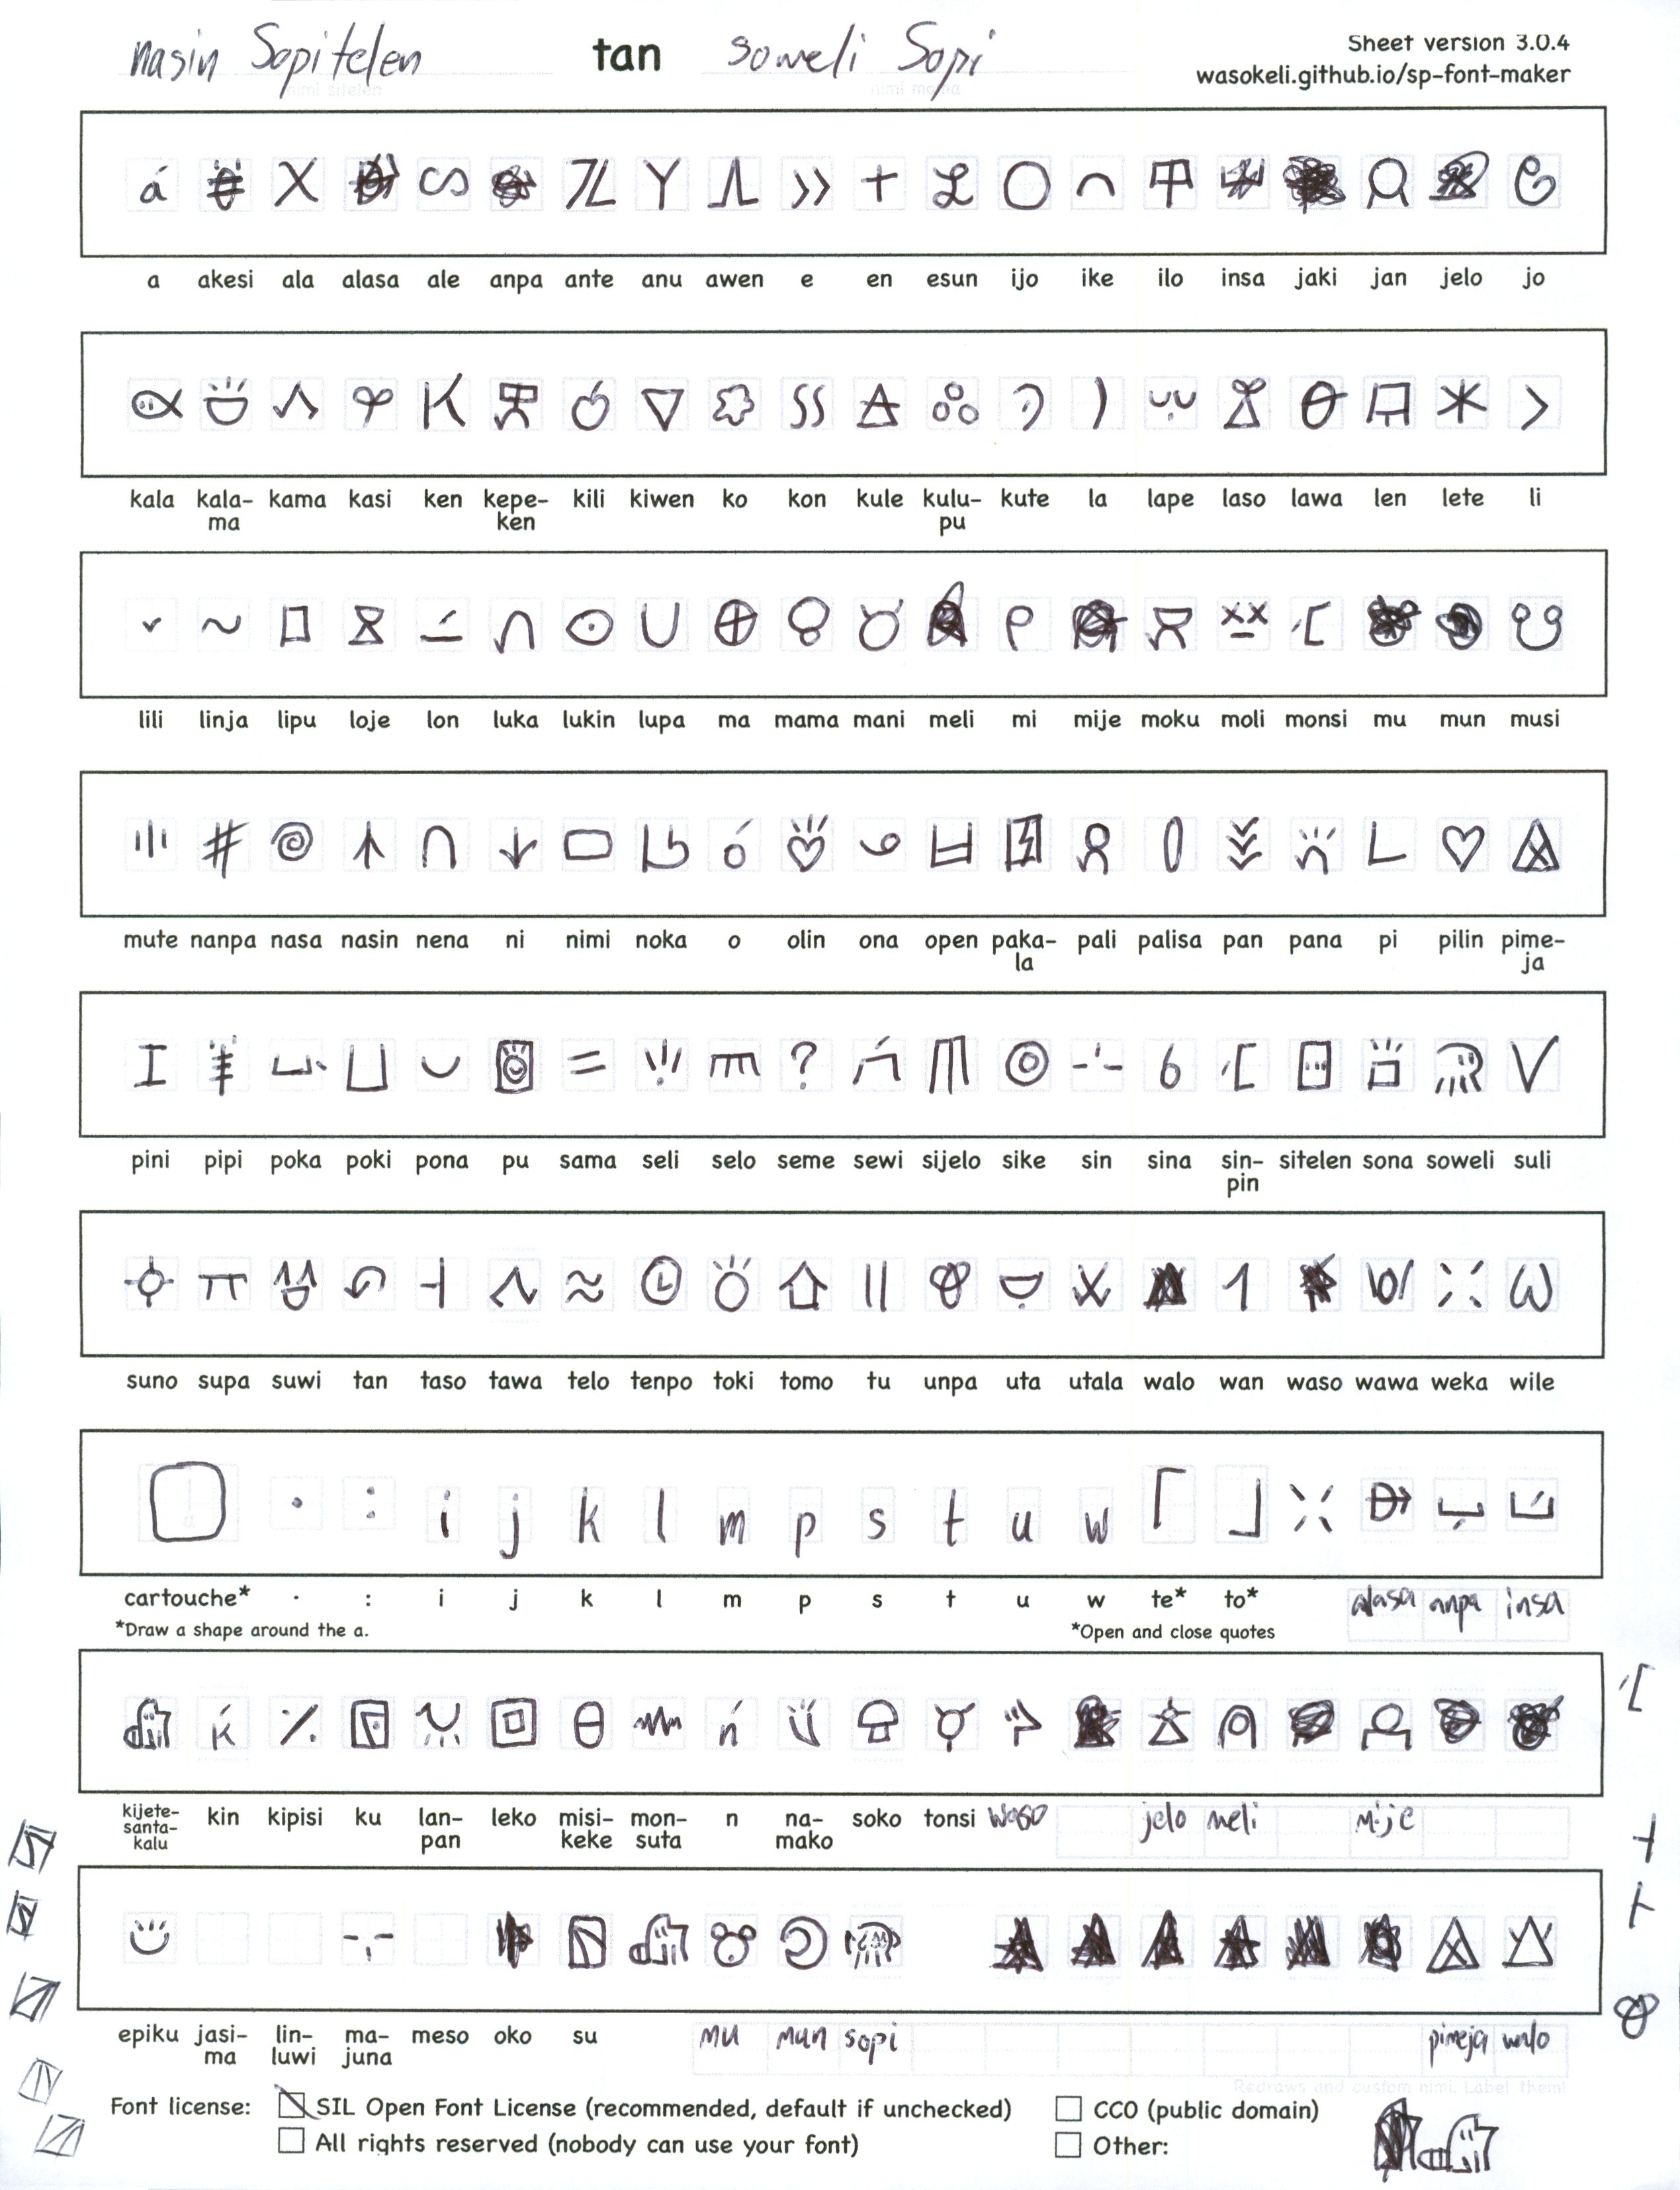 nasin Sopitelen tan soweli Sopi Sheet version 3.0.4
nimi sitelen nimi mama wasokeli.github.io/sp-font-maker
a akesi ala alasa ale anpa ante anu awen e en esun ijo ike ilo insa jaki jan jelo jo
kala kala- kama kasi ken kepe- kili kiwen ko kon kule kulu- kute la lape laso lawa len lete li
ma ken pu
lili linja lipu loje lon luka lukin lupa ma mama mani meli mi mije moku moli monsi mu mun musi
mute nanpa nasa nasin nena ni nimi noka o olin ona open paka- pali palisa pan pana pi pilin pime-
la ja
pini pipi poka poki pona pu sama seli selo seme sewi sijelo sike sin sina sin- sitelen sona soweli suli
pin
suno supa suwi tan taso tawa telo tenpo toki tomo tu unpa uta utala walo wan waso wawa weka wile
i j k l m p s t u w
cartouche* · : i j k l m p s t u w te* to* alasa anpa insa
*Draw a shape around the a. *Open and close quotes
kijete- kin kipisi ku lan- leko misi- mon- n na- soko tonsi waso jelo meli mije
santa- pan keke suta mako
kalu
epiku jasi- lin- ma- meso oko su mu mun sopi pimeja walo
ma luwi juna
Redraws and custom nimi. Label them!
Font license: SIL Open Font License (recommended, default if unchecked) CC0 (public domain)
All rights reserved (nobody can use your font) Other: